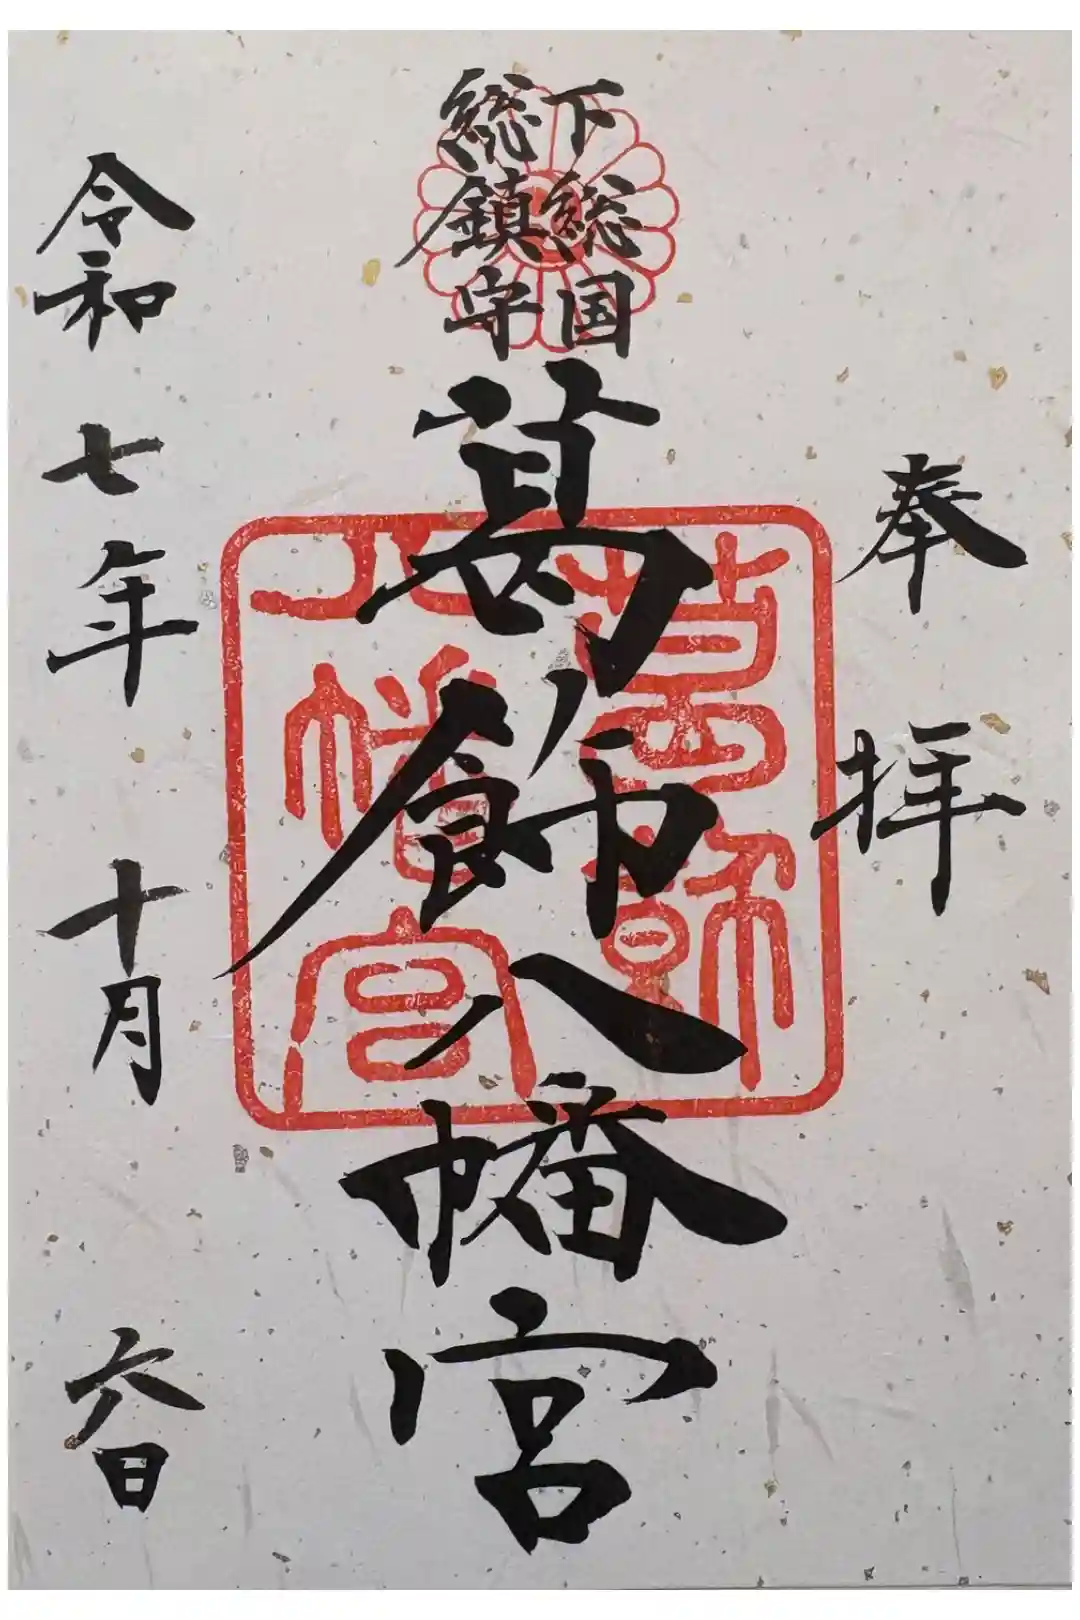 奉拝
下総国
総鎮守
葛飾八幡宮
葛飾
八幡宮
令和七年十月六日